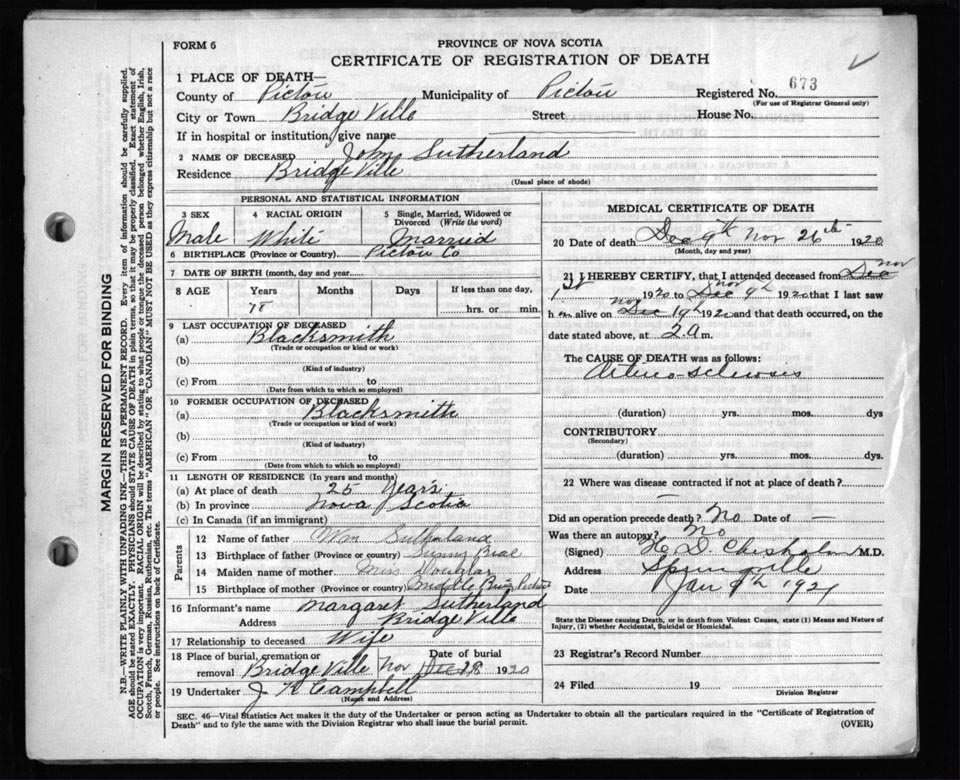 FORM 6
PROVINCE OF NOVA SCOTIA
CERTIFICATE OF REGISTRATION OF DEATH
673
1 PLACE OF DEATH—
County of Pictou Municipality of Pictou Registered No.
(For use of Registrar General only)
City or Town Bridge Ville Street House No.
If in hospital or institution, give name
2 NAME OF DECEASED John Sutherland
Residence Bridge Ville
(Usual place of abode)
PERSONAL AND STATISTICAL INFORMATION
3 SEX 4 RACIAL ORIGIN 5 Single, Married, Widowed or Divorced (Write the word)
Male White Married
6 BIRTHPLACE (Province or Country) Pictou Co
7 DATE OF BIRTH (month, day and year)
8 AGE Years Months Days If less than one day,
78 hrs. or min.
9 LAST OCCUPATION OF DECEASED
(a) Blacksmith
(Trade or occupation or kind of work)
(b)
(Kind of industry)
(c) From to
(Date from which to which so employed)
10 FORMER OCCUPATION OF DECEASED
(a) Blacksmith
(Trade or occupation or kind of work)
(b)
(Kind of industry)
(c) From to
(Date from which to which so employed)
11 LENGTH OF RESIDENCE (In years and months)
(a) At place of death 25 years
(b) In province Nova Scotia
(c) In Canada (if an immigrant)
Parents
12 Name of father Wm Sutherland
13 Birthplace of father (Province or country) Sunny Brae
14 Maiden name of mother Miss Douglas
15 Birthplace of mother (Province or country) Middle River Pictou
16 Informant's name Margaret Sutherland
Address Bridge Ville
17 Relationship to deceased Wife
18 Place of burial, cremation or removal Date of burial
Bridge Ville Nov Dec 28 1920
19 Undertaker J K Campbell
(Name and Address)
MEDICAL CERTIFICATE OF DEATH
20 Date of death Dec 9th Nov 26th 1920
(Month, day and year)
21 I HEREBY CERTIFY, that I attended deceased from Dec Nov
1st 1920 to Dec Nov 9th 1920 that I last saw
him alive on Nov Dec 19th 1920 and that death occurred, on the
date stated above, at 2 a m.
The CAUSE OF DEATH was as follows:
Arterio-sclerosis
(duration) yrs. mos. dys
CONTRIBUTORY
(Secondary)
(duration) yrs. mos. dys.
22 Where was disease contracted if not at place of death?
Did an operation precede death? No Date of —
Was there an autopsy? No
(Signed) H D Chisholm M.D.
Address Springville
Date Jan 9th 1921
State the Disease causing Death, or in death from Violent Causes, state (1) Means and Nature of
Injury, (2) whether Accidental, Suicidal or Homicidal.
23 Registrar's Record Number
24 Filed 19
Division Registrar
SEC. 46—Vital Statistics Act makes it the duty of the Undertaker or person acting as Undertaker to obtain all the particulars required in the "Certificate of Registration of
Death" and to fyle the same with the Division Registrar who shall issue the burial permit. (OVER)
MARGIN RESERVED FOR BINDING
N.B.—WRITE PLAINLY WITH UNFADING INK—THIS IS A PERMANENT RECORD. Every item of information should be carefully supplied.
AGE should be stated EXACTLY. PHYSICIANS should STATE CAUSE OF DEATH in plain terms, so that it may be properly classified. Exact statement of
OCCUPATION is very important. RACIAL ORIGIN will be described by stating to what people or tongue the deceased person belonged whether English, Irish,
Scotch, French, German, Russian, Ruthenian, etc. The terms "AMERICAN" OR "CANADIAN" MUST NOT BE USED as they express citizenship but not a race
or people. See instructions on back of Certificate.